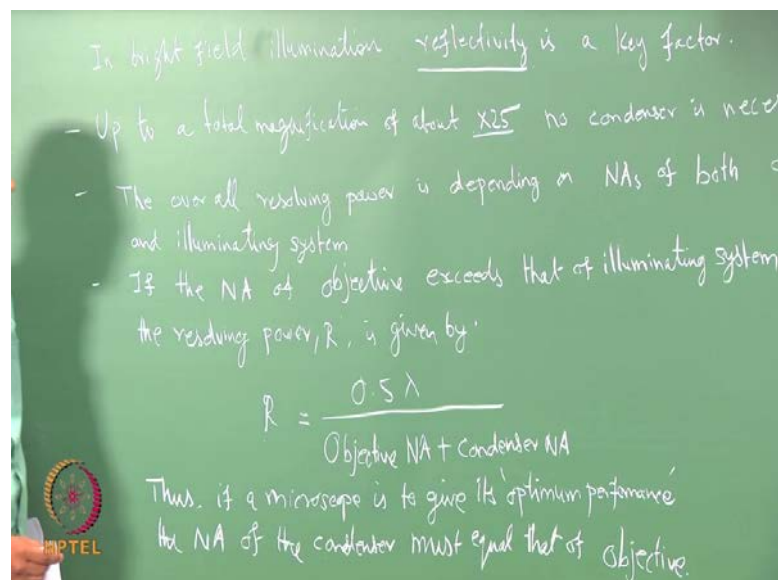 In bright field illumination reflectivity is a key factor.
- Up to a total magnification of about X25 no condenser is nece
- The over all resolving power is depending on NAs of both
and illuminating system
- If the NA of objective exceeds that of illuminating system
the resolving power, R, is given by.
R = 0.5 λ
Objective NA + Condenser NA
Thus, if a microscope is to give its 'optimum perfomance'
the NA of the condenser must equal that of objective.
NPTEL